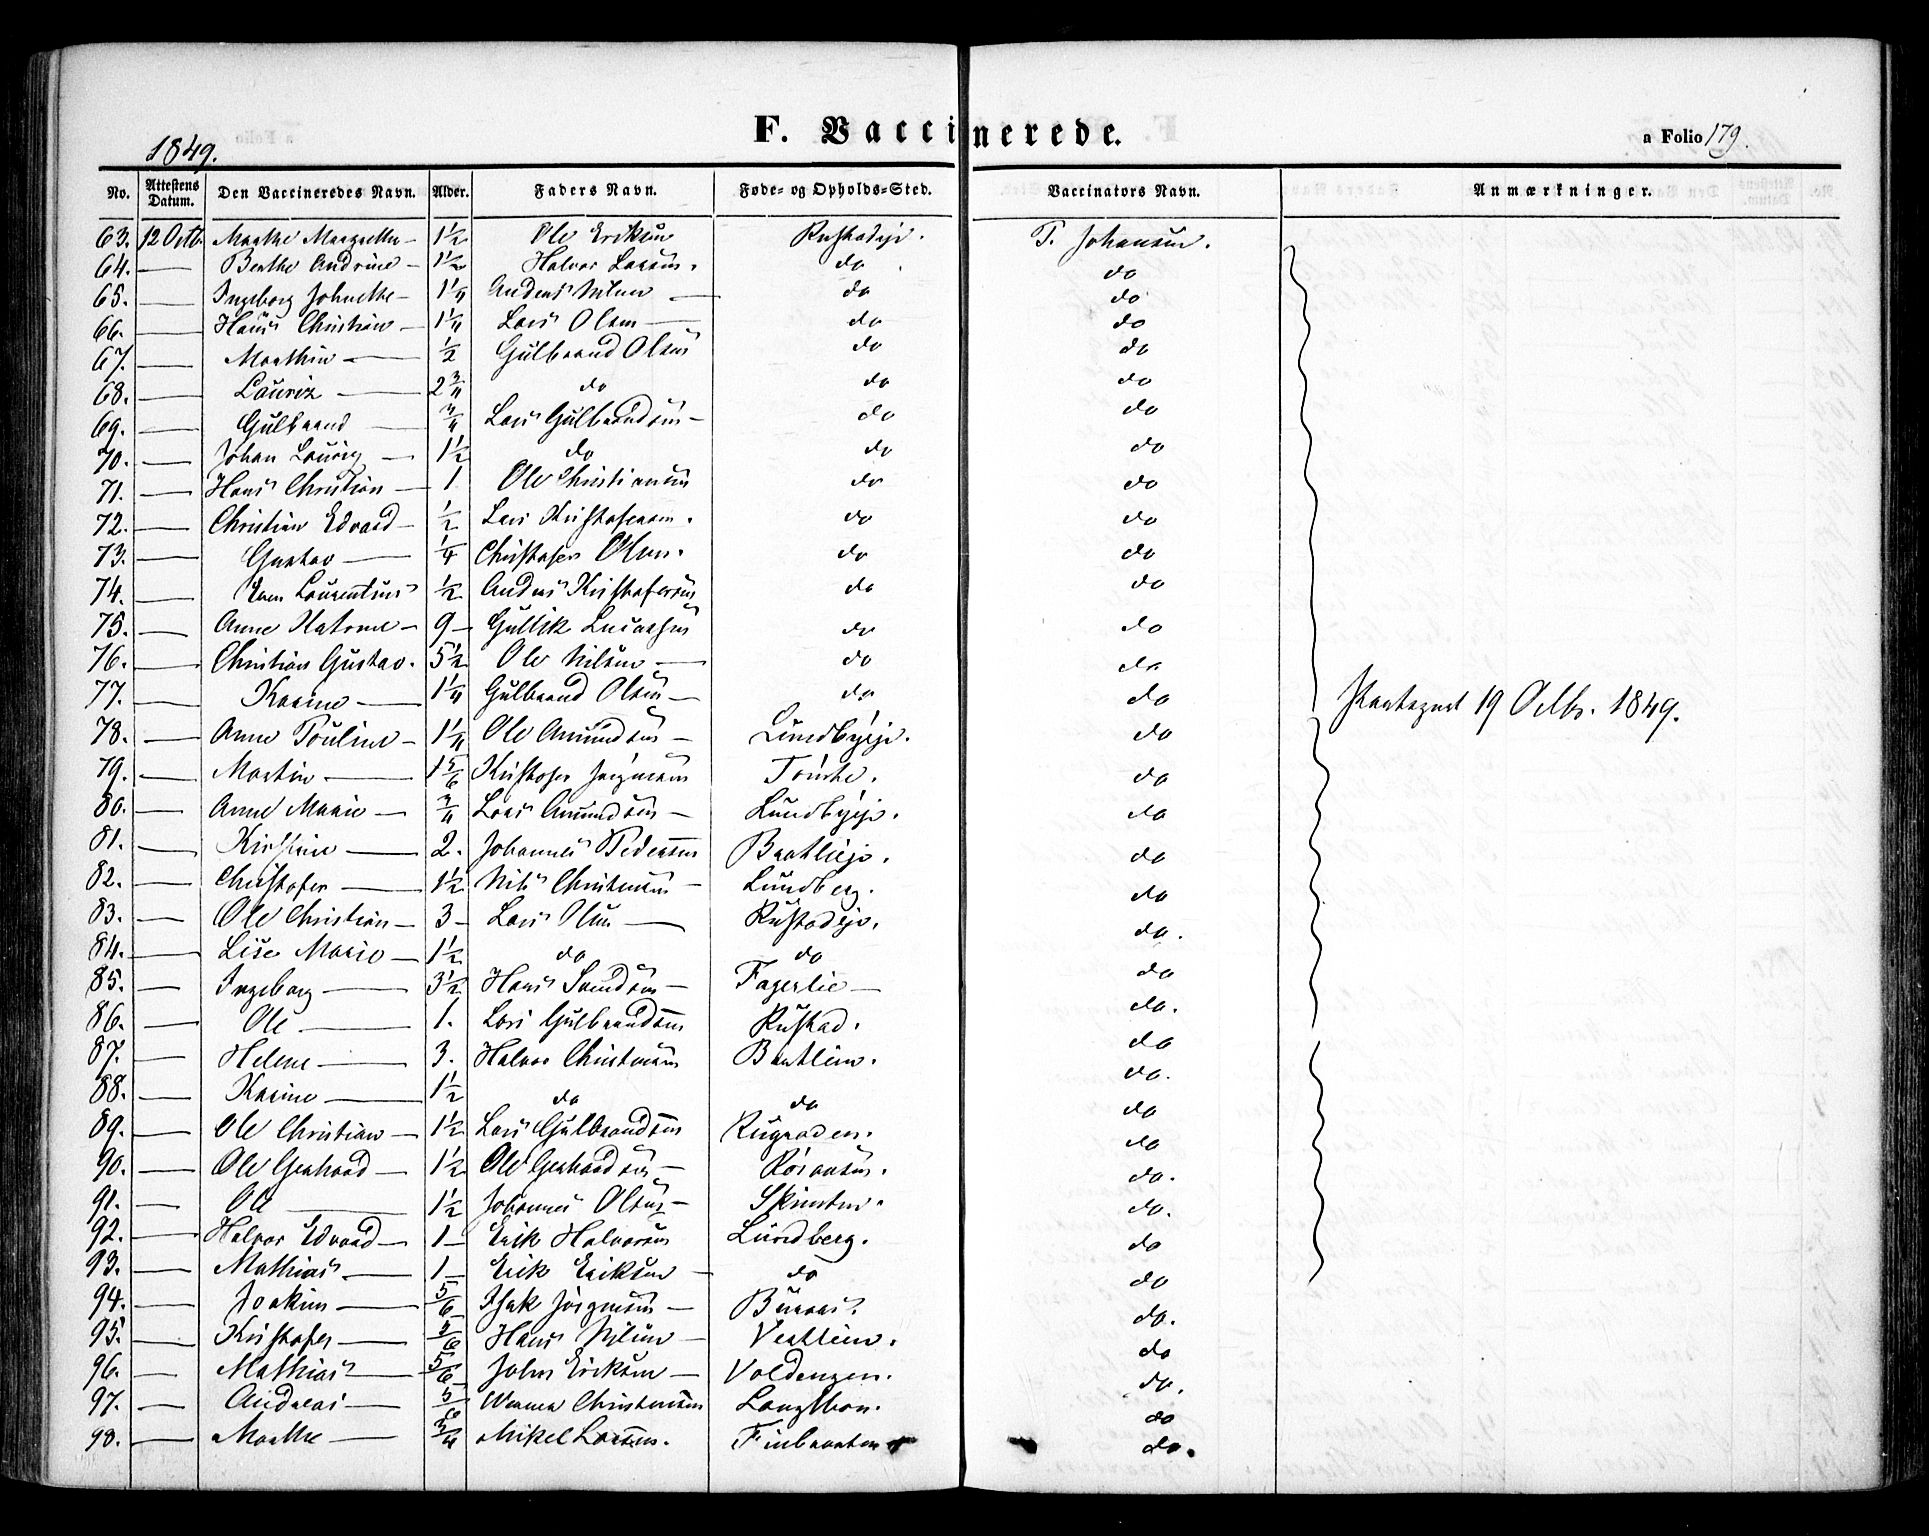 1849.
F. Vaccinerede.
a Folio 179.
No. Attestens Datum. Den Vaccineredes Navn. Alder. Faders Navn. Føde- og Opholds-Sted. Vaccinators Navn. Anmærkninger.
63. 12 Octb. Marthe Margrethe — 1½ Ole Eriksen Rustadeje. T. Johansen.
64. — Berthe Andrine — 1½ Halvor Larsen. do do
65. — Ingeborg Johnette — 1¼ Anders Nilsen — do do
66. — Hans Christian — 1¼ Lars Olsen — do do
67. — Marthin — ½ Gulbrand Olsen do do
68. — Lauriz — 2¾ do do do
69. — Gulbrand — ¾ Lars Gulbrandsen — do do
70. — Johan Lauriz — 1½ do do do
71. — Hans Christian — 1 Ole Christiansen do do
72. — Christian Edvard — ½ Lars Kristofersen. do do
73. — Gustav — ¼ Christofer Olsen. do do
74. — Even Laurentius ½ Anders Kristofersen do do
75. — Anne Katrine — 9 — Gullik do do
76. — Christian Gustav. 5½ Ole Nilsen — do do
77. — Karine — 1¼ Gulbrand Olsen — do do 19 Octbr. 1849.
78. — Anne Pouline — 1¼ Ole Amundsen — Lundbyeje. do
79. — Martin — 1 5/6 Kristofer Jørgensen do
80. — Anne Marie — ¾ Lars Amundsen — Lundbyeje. do
81. — Kirstine — 2. Johannes Pedersen Bratlieje. do
82. — Christofer — 1½ Nils Christensen — Lundberg. do
83. — Ole Christian — 3 — Lars Olsen — Rustadeje. do.
84. — Lise Marie — 1½ do do do
85. — Ingeborg — 3½ Hans Svendsen — Fagerlie — do.
86. — Ole — 1. Lars Gulbrandsen Rustad. do
87. — Helene — 3. Halvor Christensen Bratlien. do.
88. — Karine — 1½ do do do
89. — Ole Christian — 1½ Lars Gulbrandsen do
90. — Ole Gerhard — 1½ Ole Gerhardsen — do.
91. — Ole — 1½ Johannes Olsen — do.
92. — Halvor Edvard — 1 — Erik Halvorsen Lundberg. do
93. — Mathias — 1 — Erik Eriksen — do do
94. — Joakim — 5/6 Isak Jørgensen — do.
95. — Kristofer — 5/6 Hans Nilsen — Vestlien. do
96. — Mathias 5/6 John Eriksen — Voldengen. do.
97. — Andreas — 5/6 Christensen do
98. — Marthe — ¾ Mikel Larsen. Finbraaten do.